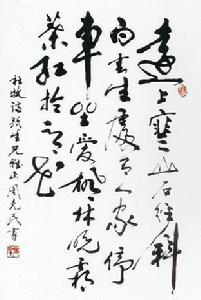 遠上寒山石径斜
白云生處有人家停
車坐愛楓林晚霜
葉红於二月花
杜牧詩生兄雅正周書